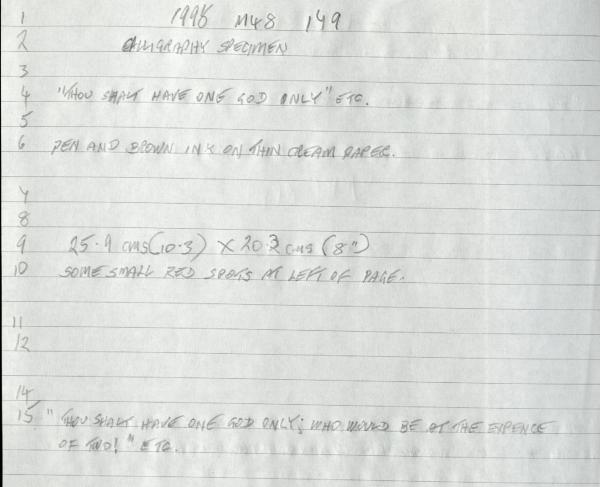 1 1998 M48 149
2 CALLIGRAPHY SPECIMEN
3
4 "THOU SHALT HAVE ONE GOD ONLY" ETC.
5
6 PEN AND BROWN INK ON THIN CREAM PAPER.
7
8
9 25.9 cms (10.3) X 20.3 cms (8")
10 SOME SMALL RED SPOTS AT LEFT OF PAGE.
11
12
14
15 "THOU SHALT HAVE ONE GOD ONLY; WHO WOULD BE AT THE EXPENCE
OF TWO!" ETC.